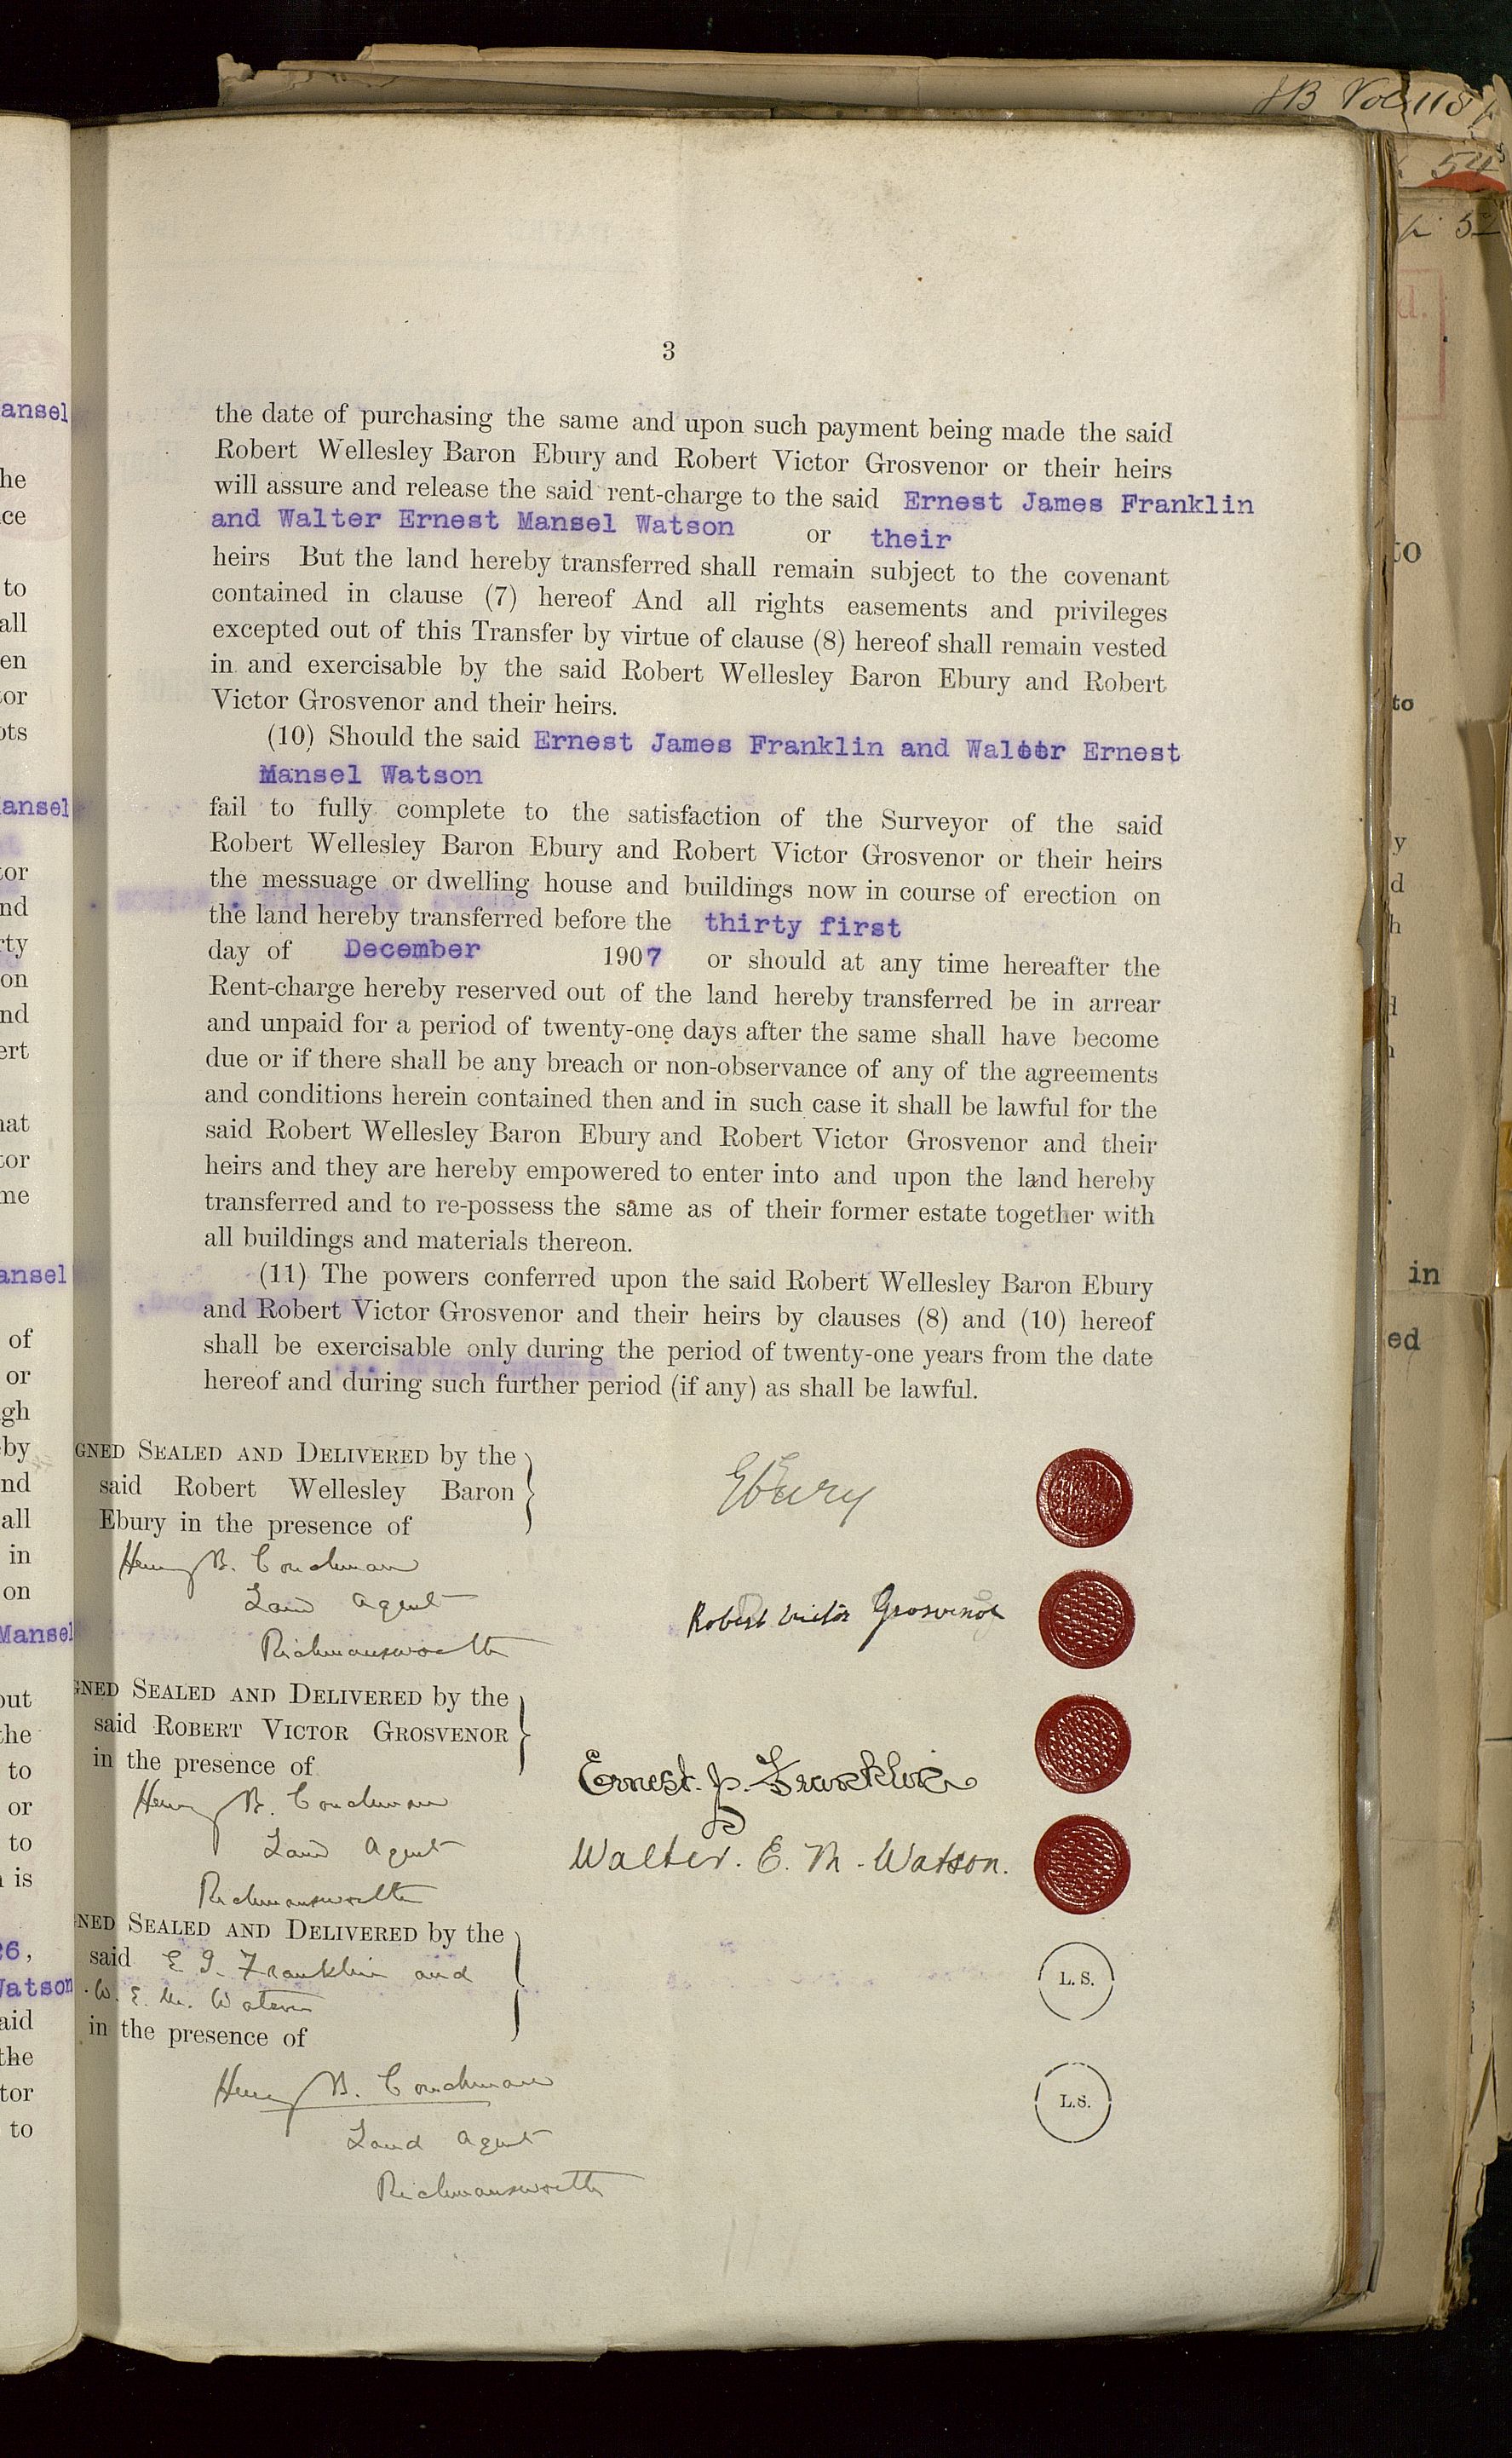 JB Vol 115
54
3
the date of purchasing the same and upon such payment being made the said
Robert Wellesley Baron Ebury and Robert Victor Grosvenor or their heirs
will assure and release the said rent-charge to the said Ernest James Franklin
and Walter Ernest Mansel Watson or their
heirs But the land hereby transferred shall remain subject to the covenant
contained in clause (7) hereof And all rights easements and privileges
excepted out of this Transfer by virtue of clause (8) hereof shall remain vested
in and exercisable by the said Robert Wellesley Baron Ebury and Robert
Victor Grosvenor and their heirs.
(10) Should the said Ernest James Franklin and Walter Ernest
Mansel Watson
fail to fully complete to the satisfaction of the Surveyor of the said
Robert Wellesley Baron Ebury and Robert Victor Grosvenor or their heirs
the messuage or dwelling house and buildings now in course of erection on
the land hereby transferred before the thirty first
day of December 1907 or should at any time hereafter the
Rent-charge hereby reserved out of the land hereby transferred be in arrear
and unpaid for a period of twenty-one days after the same shall have become
due or if there shall be any breach or non-observance of any of the agreements
and conditions herein contained then and in such case it shall be lawful for the
said Robert Wellesley Baron Ebury and Robert Victor Grosvenor and their
heirs and they are hereby empowered to enter into and upon the land hereby
transferred and to re-possess the same as of their former estate together with
all buildings and materials thereon.
(11) The powers conferred upon the said Robert Wellesley Baron Ebury
and Robert Victor Grosvenor and their heirs by clauses (8) and (10) hereof
shall be exercisable only during the period of twenty-one years from the date
hereof and during such further period (if any) as shall be lawful.
GNED SEALED AND DELIVERED by the
said Robert Wellesley Baron
Ebury in the presence of
Ebury
Henry B. Couchman
Land Agent
Rickmansworth
Robert Victor Grosvenor
GNED SEALED AND DELIVERED by the
said ROBERT VICTOR GROSVENOR
in the presence of
Henry B. Couchman
Land Agent
Rickmansworth
Ernest. J. Franklin
Walter. E. M. Watson.
NED SEALED AND DELIVERED by the
said E J. Franklin and
W. E. M. Watson
in the presence of
L. S.
Henry B. Couchman
Land Agent
Rickmansworth
L.S.